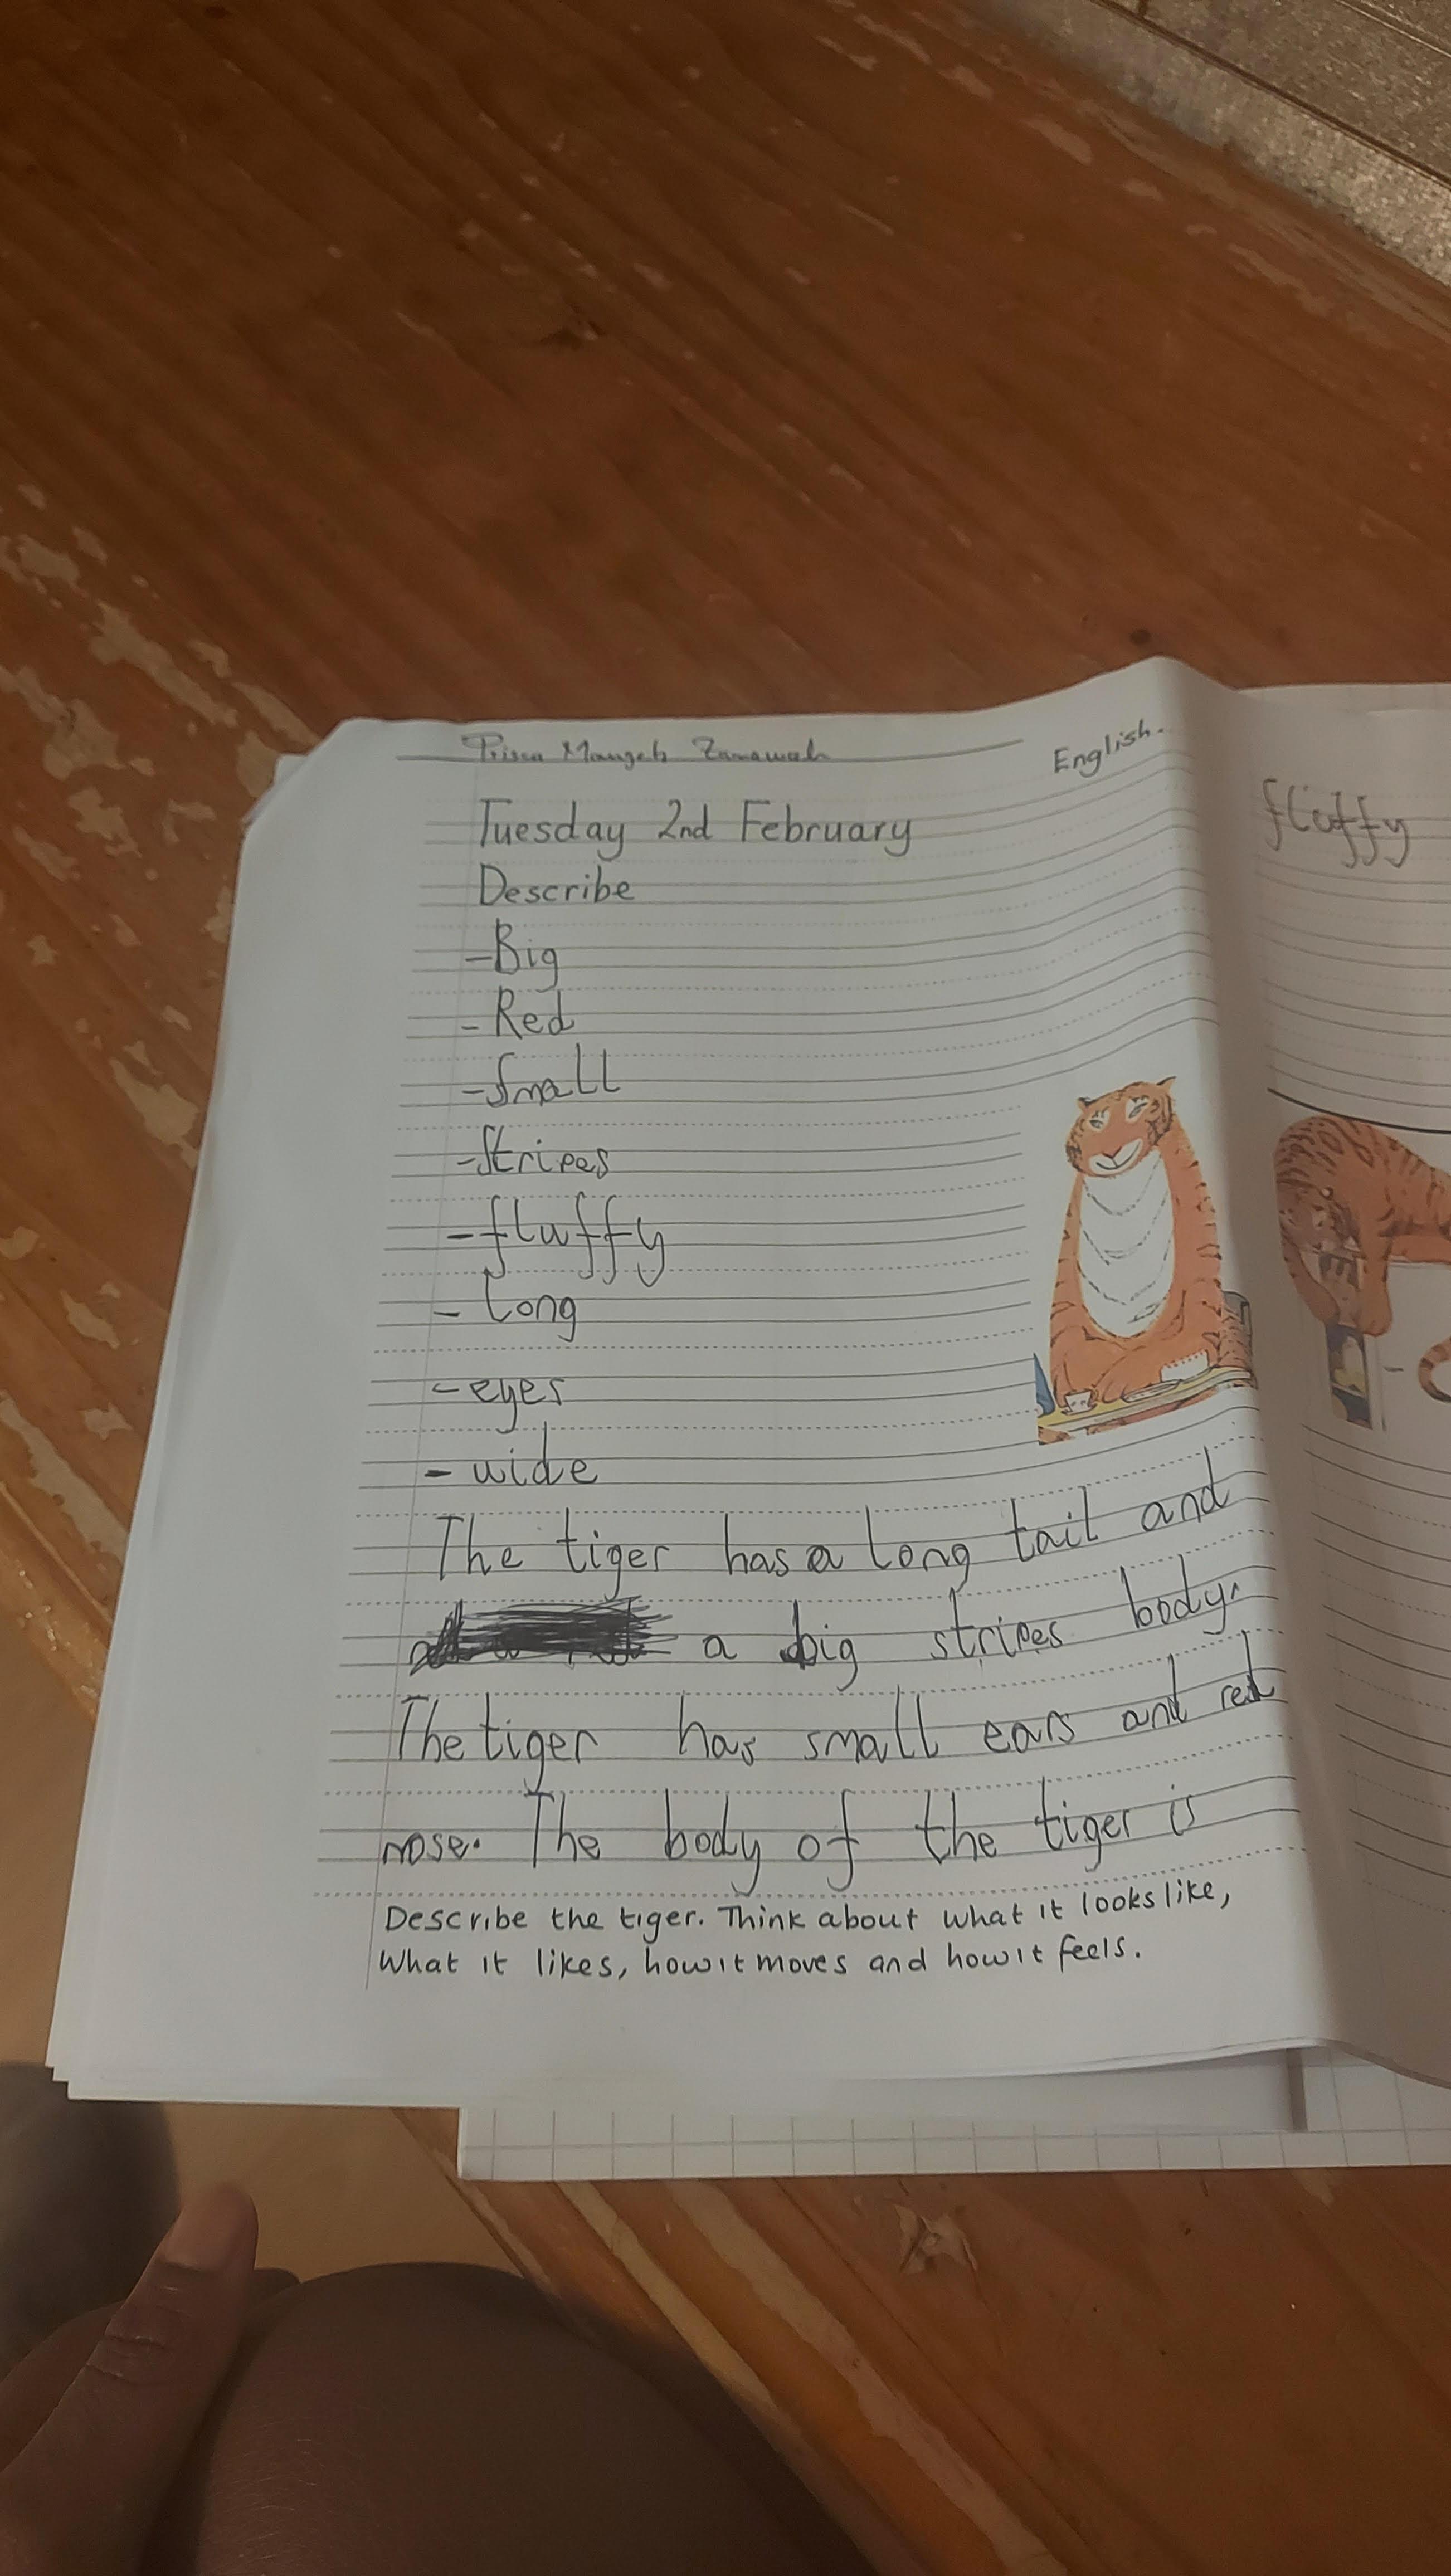 English.
Tuesday 2nd February
Describe
-Big
- Red
-Small
-Stripes
-fluffy
- Long
-eyes
- wide
The tiger has a long tail and
a big stripes body.
The tiger has small ears and red
nose. The body of the tiger is
Describe the tiger. Think about what it looks like,
What it likes, how it moves and how it feels.
fluffy